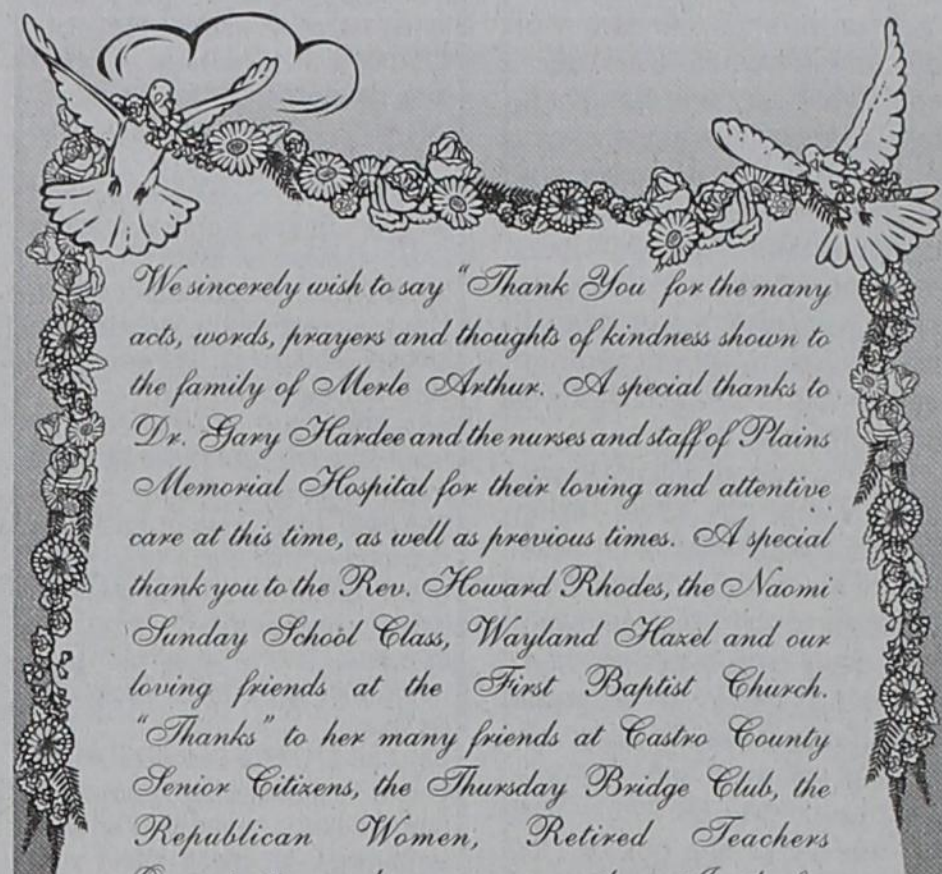 We sincerely wish to say "Thank You for the many
acts, words, prayers and thoughts of kindness shown to
the family of Merle Arthur. A special thanks to
Dr. Gary Hardee and the nurses and staff of Plains
Memorial Hospital for their loving and attentive
care at this time, as well as previous times. A special
thank you to the Rev. Howard Rhodes, the Naomi
Sunday School Class, Wayland Hazel and our
loving friends at the First Baptist Church.
"Thanks" to her many friends at Castro County
Senior Citizens, the Thursday Bridge Club, the
Republican Women, Retired Teachers